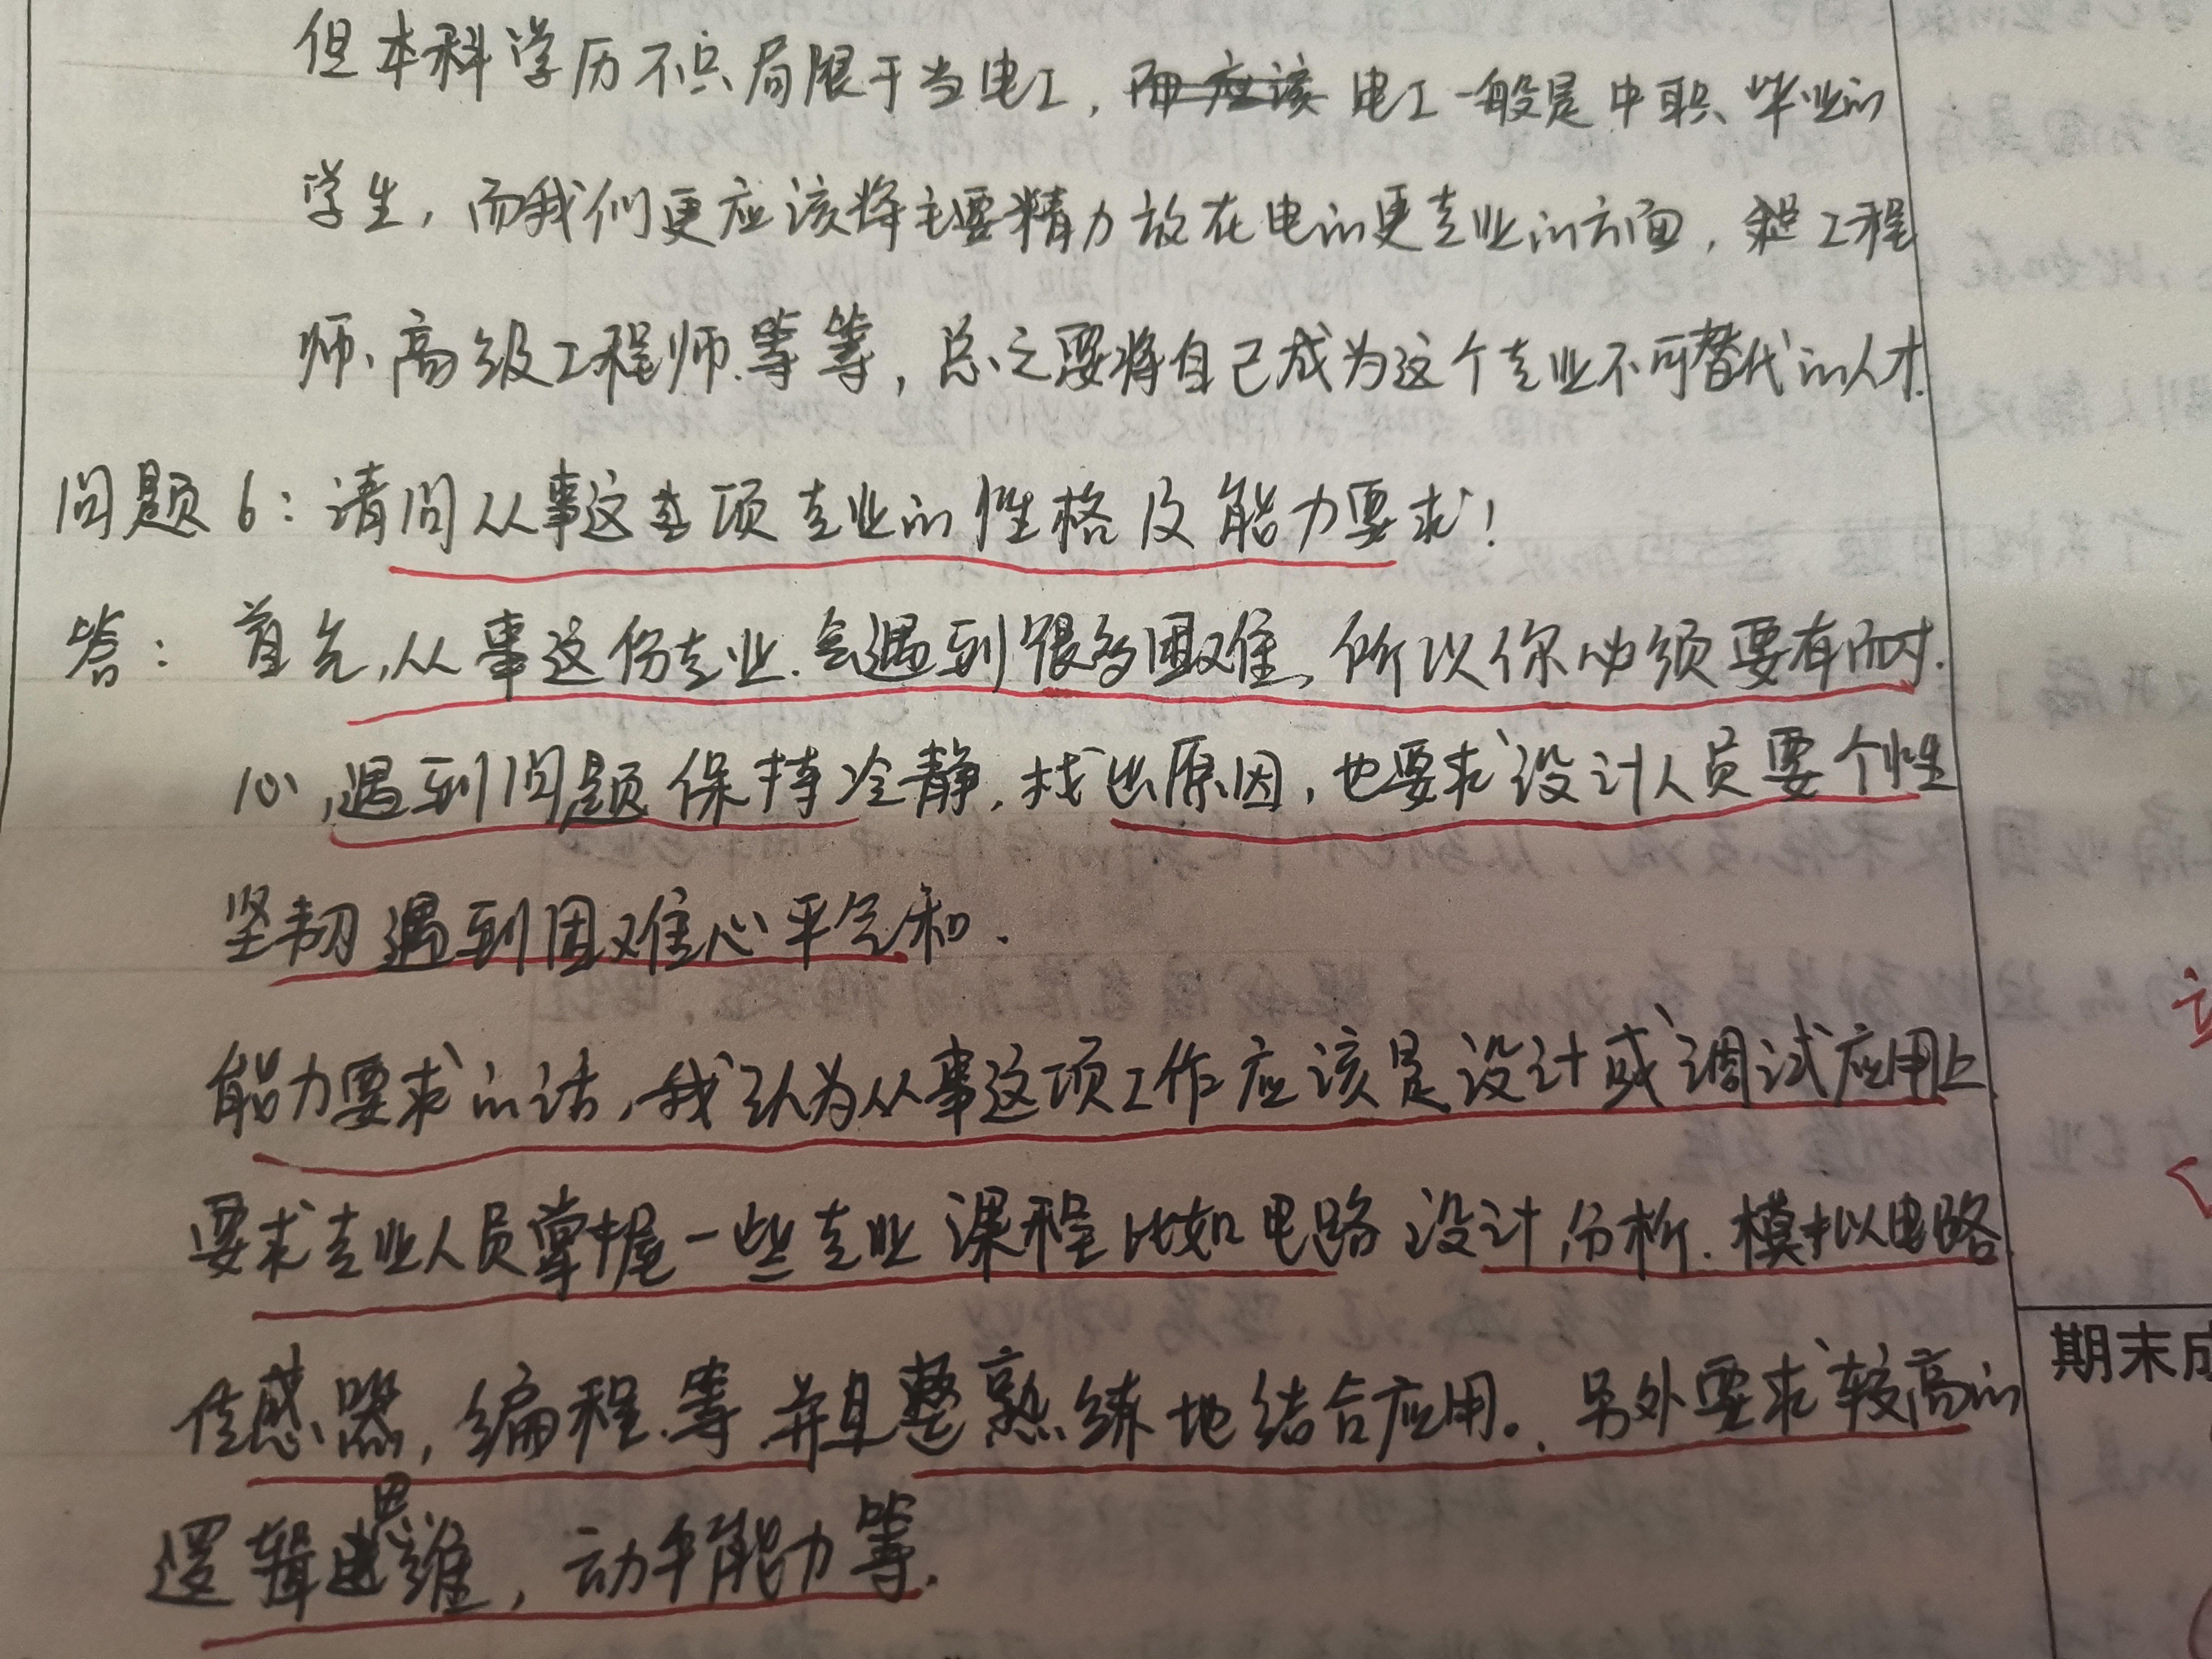 但本科学历不只局限于当电工，电工一般是中职、毕业的
学生，而我们更应该将主要精力放在电的更专业的方面，工程
师、高级工程师.等等，总之要将自己成为这个专业不可替代的人才.
问题6：请问从事这项专业的性格及能力要求！
答：首先，从事这份专业.会遇到很多困难，所以你必须要有耐.
心，遇到问题保持冷静，找出原因，也要求设计人员要个性
坚韧遇到困难心平气和.
能力要求的话，我认为从事这项工作应该是设计或调试应用上
要求专业人员掌握一些专业课程比如电路设计，分析.模拟电路
传感器，编程.等.并且熟练地结合应用。.另外要求较高的
逻辑思维，动手能力等.
期末成